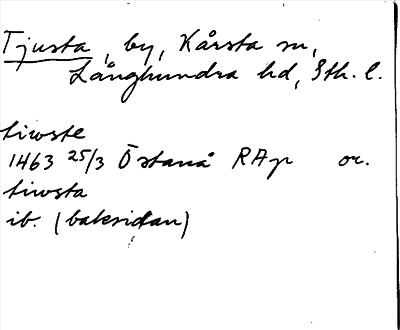 Tjusta, by, Kårsta sn,
Långhundra hd, Sth. l.
tiwste
1463 25/3 Östanå RAp or.
tiwsta
ib. (baksidan)